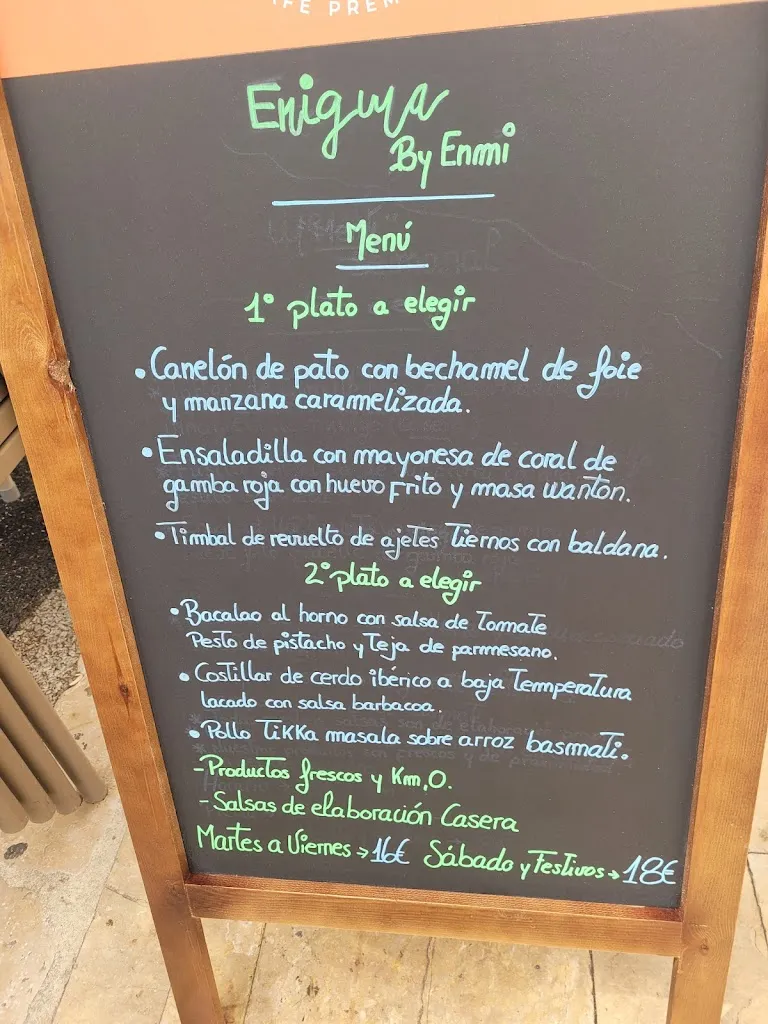 Enigma
By Enmi
Menú
1º plato a elegir
• Canelón de pato con bechamel de foie
y manzana caramelizada.
• Ensaladilla con mayonesa de coral de
gamba roja con huevo frito y masa wanton.
• Timbal de revuelto de ajetes tiernos con baldana.
2º plato a elegir
• Bacalao al horno con salsa de tomate
Pesto de pistacho y teja de parmesano.
• Costillar de cerdo ibérico a baja temperatura
lacado con salsa barbacoa.
• Pollo Tikka masala sobre arroz basmati.
- Productos frescos y Km,0.
- Salsas de elaboración Casera
Martes a Viernes → 16€ Sábado y Festivos → 18€